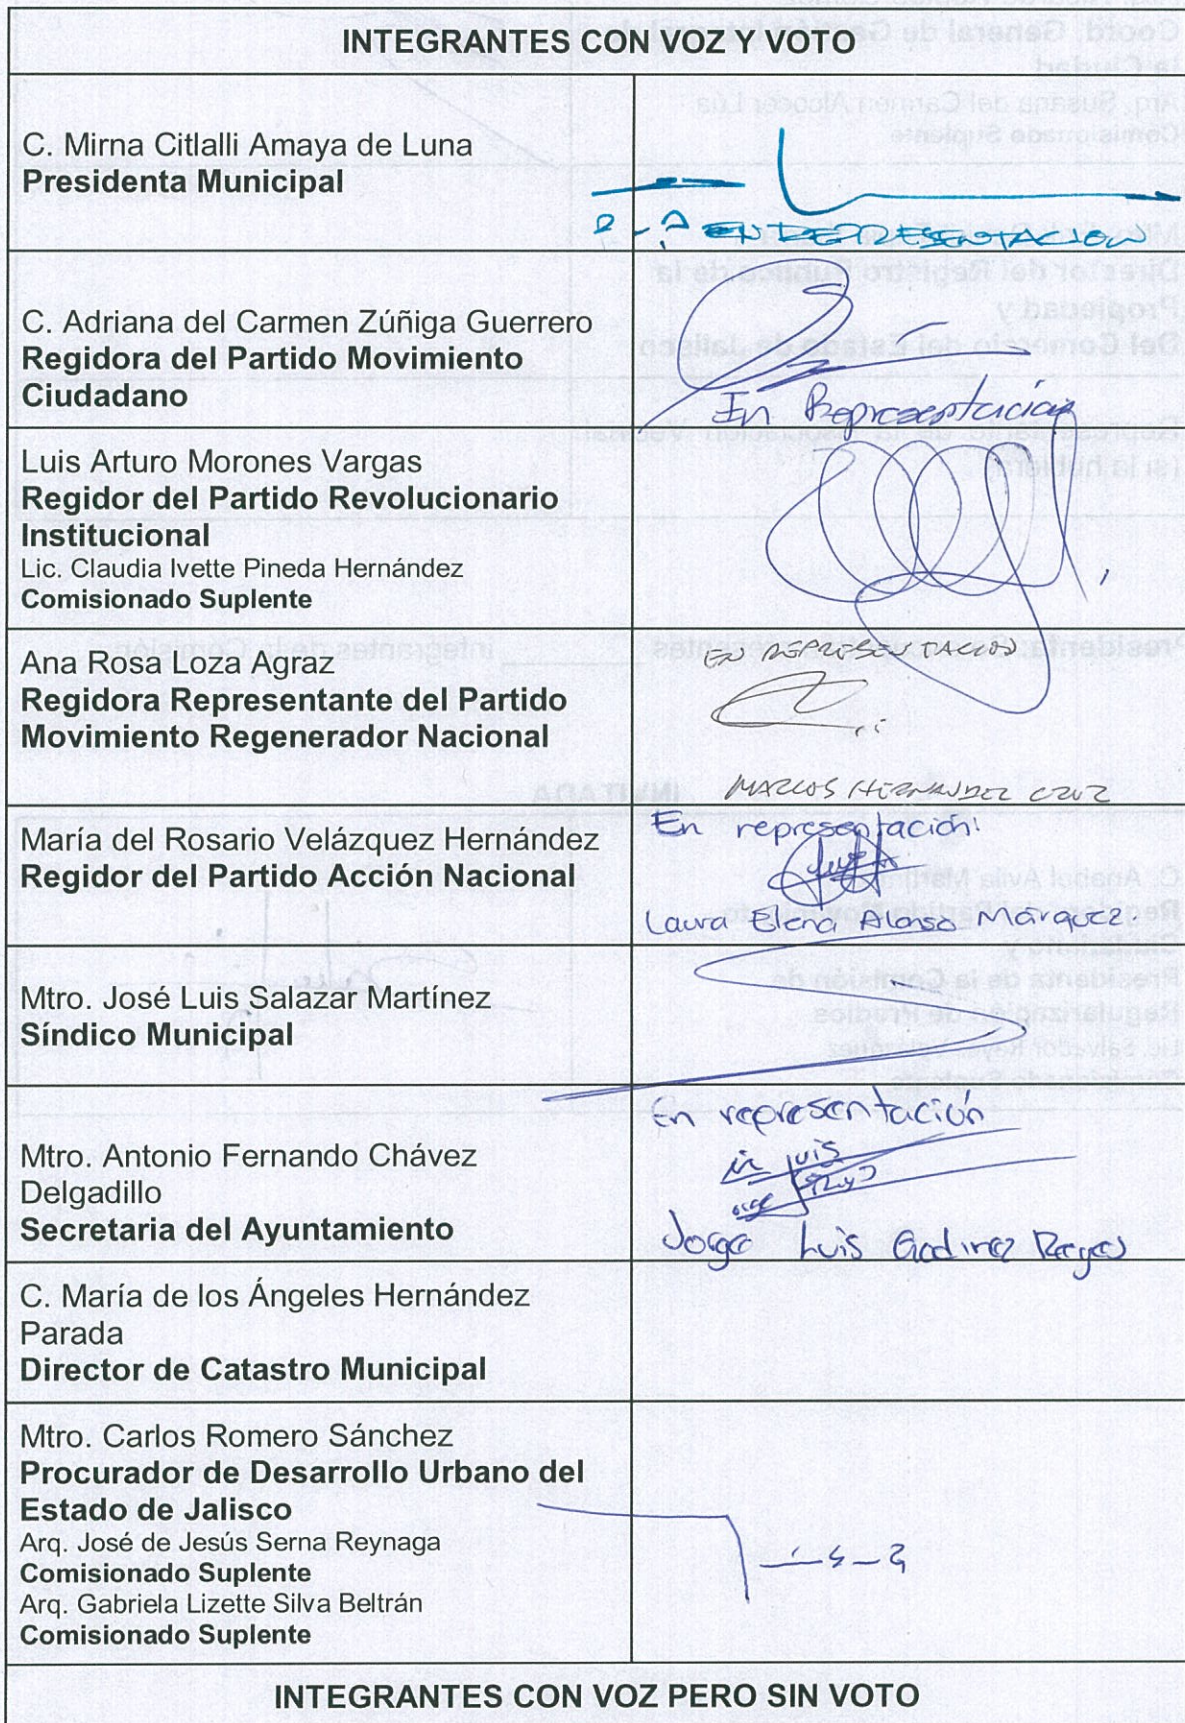 INTEGRANTES CON VOZ Y VOTO
C. Mirna Citlalli Amaya de Luna
Presidenta Municipal
EN REPRESENTACION
C. Adriana del Carmen Zúñiga Guerrero
Regidora del Partido Movimiento
Ciudadano
In Representación
Luis Arturo Morones Vargas
Regidor del Partido Revolucionario
Institucional
Lic. Claudia Ivette Pineda Hernández
Comisionado Suplente
Ana Rosa Loza Agraz
Regidora Representante del Partido
Movimiento Regenerador Nacional
EN REPRESENTACION
MARCOS HERNANDEZ CRUZ
María del Rosario Velázquez Hernández
Regidor del Partido Acción Nacional
En representación:
Laura Elena Alonso Márquez
Mtro. José Luis Salazar Martínez
Síndico Municipal
Mtro. Antonio Fernando Chávez
Delgadillo
Secretaria del Ayuntamiento
En representación
Jorge Luis Godinez Reyes
C. María de los Ángeles Hernández
Parada
Director de Catastro Municipal
Mtro. Carlos Romero Sánchez
Procurador de Desarrollo Urbano del
Estado de Jalisco
Arq. José de Jesús Serna Reynaga
Comisionado Suplente
Arq. Gabriela Lizette Silva Beltrán
Comisionado Suplente
INTEGRANTES CON VOZ PERO SIN VOTO